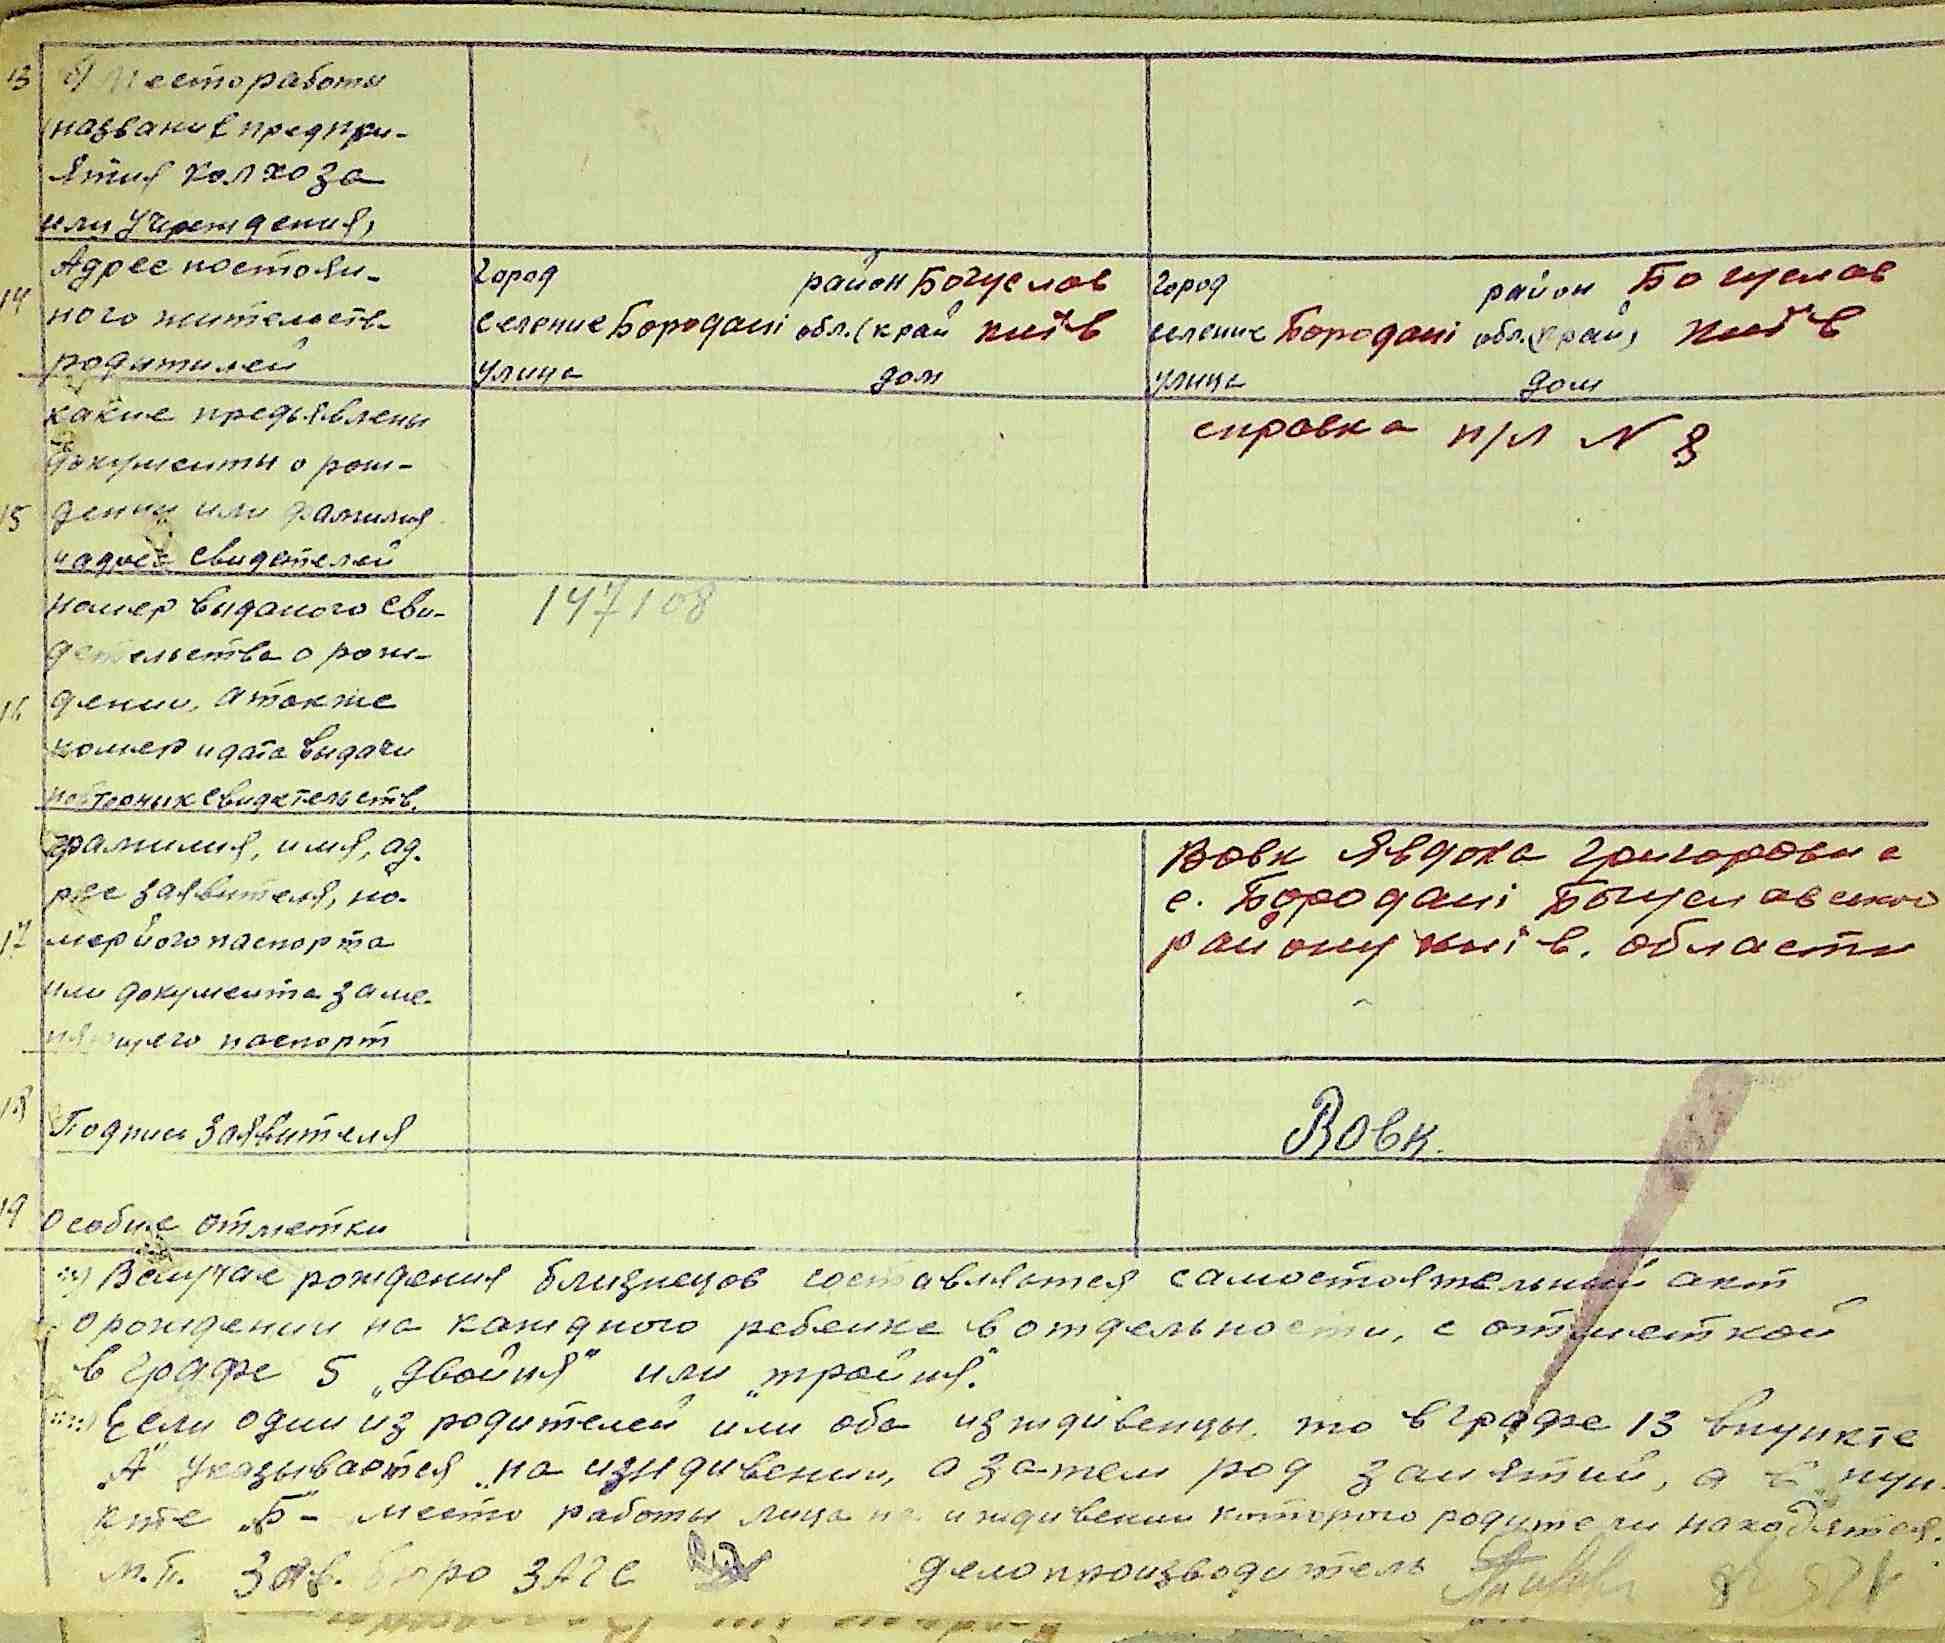 13 б) Место работы
название предпри-
ятия колхоза
или учреждения,
14 Адрес постоян-
ного жительств.
родителей
город район Богуслав
селение Бородані обл. (край Київ
улица дом
город район Богуслав
селение Бородані обл. (край) Київ
улица дом
15 какие предъявлены
документы о рож-
дении или фамилия
и адрес свидетелей
справка п/л N 8
16 номер выданого сви-
детельства о рож-
дении, а также
номер и дата выдачи
повторных свидетельств.
147108
17 фамилия, имя, ад-
рес заявителя, но-
мер його паспорта
или документа заме-
няющего паспорт
Вовк Явдоха Григоровна
с. Бородані Богуславского
району Київ. области
18 Подпись заявителя
Вовк.
19 Особые отметки
::) В случае рождения близнецов составляются самостоятельный акт
о рождении на каждного ребенка в отдельности, с отметкой
в графе 5 „двойня" или „тройня".
:::) Если один из родителей или оба иждивенцы, то в графе 13 в пункте
„А" указывается „на иждивении, а затем род занятий, а в пун-
кте „Б" - место работы лица на иждивении которого родители находятся.
м.п. Зав. бюро ЗАГС делопроизводитель